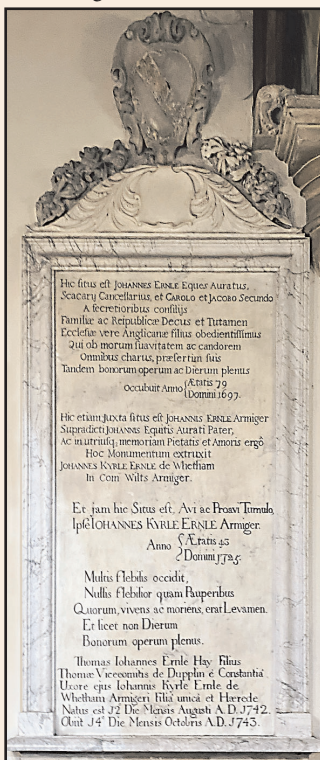 Hic situs est JOHANNES ERNLE Eques Auratus,
Scacarij Cancellarius, et CAROLO et JACOBO Secundo
A secretioribus consilijs
Familiæ ac Reipublicæ Decus et Tutamen
Ecclesiæ vere Anglicanæ filius obedientissimus
Qui ob morum suavitatem ac candorem
Omnibus charus, præsertim suis
Tandem bonorum operum ac Dierum plenus
Occubuit Anno { Ætatis 79
Domini 1697.
Hic etiam Juxta situs est JOHANNIS ERNLE Armiger
Supradicti JOHANNIS Equitis Aurati Pater,
Ac in utriusq; memoriam Pietatis et Amoris ergô
Hoc Monumentum extruxit
JOHANNES KYRLE ERNLE de Whetham
In Com Wilts Armiger.
Et jam hic Situs est, Avi ac Proavi Tumulo,
Ipse JOHANNES KYRLE ERNLE Armiger.
Anno { Ætatis 43
Domini 1725.
Multis flebilis occidit,
Nullis flebilior quam Pauperibus
Quorum, vivens ac moriens, erat Levamen.
Et licet non Dierum
Bonorum operum plenus.
Thomas Iohannes Ernle Hay Filius
Thomæ Vicecomitis de Dupplin è Constantiâ
Uxore ejus Iohannis Kyrle Ernle de
Whetham Armigeri Filiâ unicâ et Hærede
Natus est J2 Die Mensis Augusti A.D. J742.
Obiit J4º Die Mensis Octobris A.D. J743.